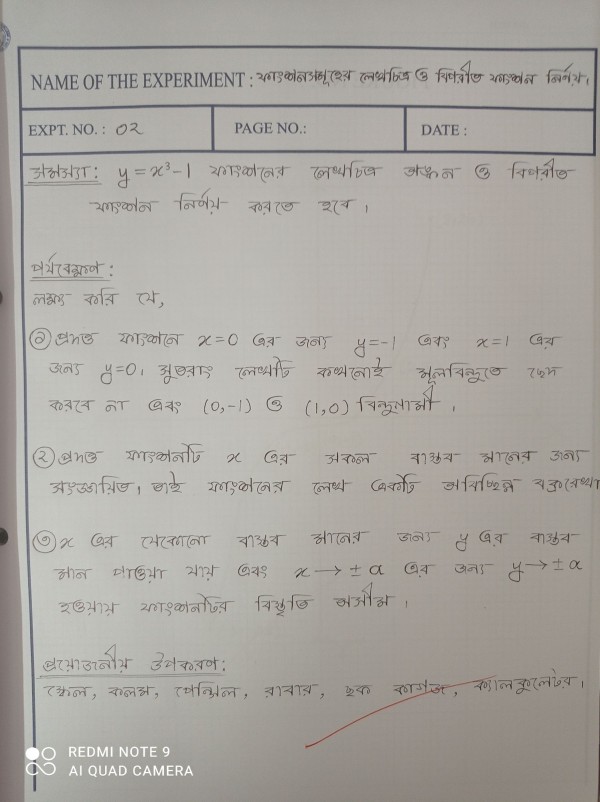 NAME OF THE EXPERIMENT : ফাংশনসমূহের লেখচিত্র ও বিপরীত ফাংশন নির্ণয়।
EXPT. NO. : 02 PAGE NO.: DATE :
সমস্যা: y = x³-1 ফাংশনের লেখচিত্র অঙ্কন ও বিপরীত
ফাংশন নির্ণয় করতে হবে।
পর্যবেক্ষণ :
লক্ষ্য করি যে,
① প্রদত্ত ফাংশনে x=0 এর জন্য y=-1 এবং x=1 এর
জন্য y=0, সুতরাং লেখটি কখনোই মূলবিন্দুতে ছেদ
করবে না এবং (0,-1) ও (1,0) বিন্দুগামী।
② প্রদত্ত ফাংশনটি x এর সকল বাস্তব মানের জন্য
সংজ্ঞায়িত, তাই ফাংশনের লেখ একটি অবিচ্ছিন্ন বক্ররেখা
③ x এর যেকোনো বাস্তব মানের জন্য y এর বাস্তব
মান পাওয়া যায় এবং x → ± α এর জন্য y → ± α
হওয়ায় ফাংশনটির বিস্তৃতি অসীম।
প্রয়োজনীয় উপকরণ:
স্কেল, কলম, পেন্সিল, রাবার, ছক কাগজ, ক্যালকুলেটর।
REDMI NOTE 9
AI QUAD CAMERA